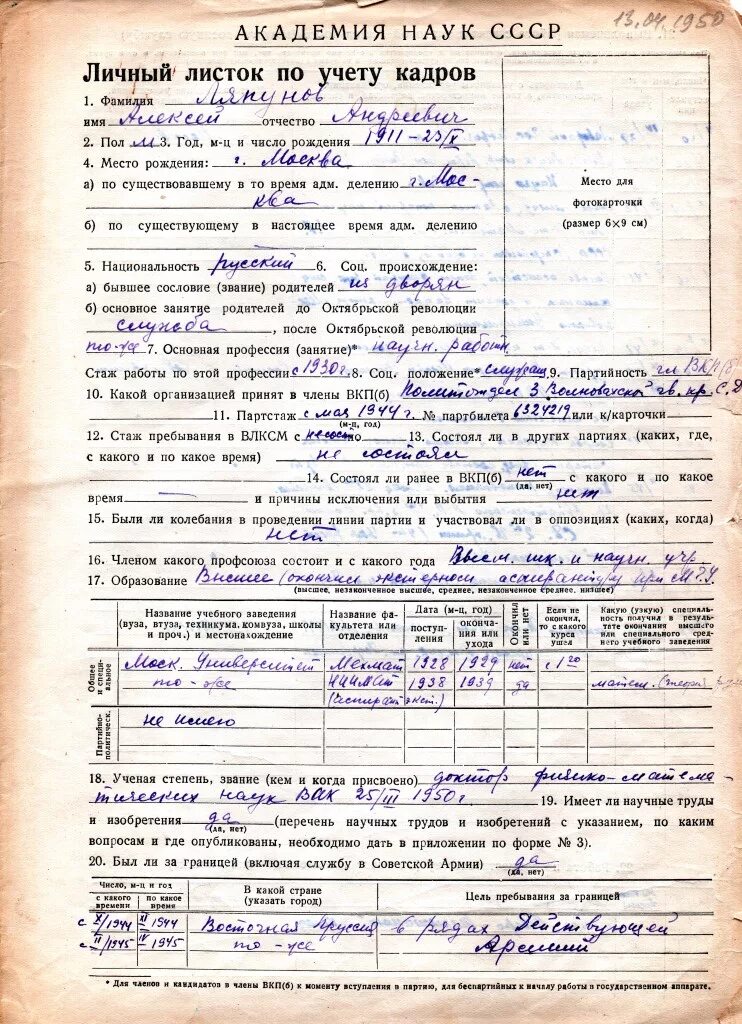 13.04.1950
АКАДЕМИЯ НАУК СССР
Личный листок по учету кадров
1. Фамилия Ляпунов
имя Алексей отчество Андреевич
2. Пол м. 3. Год, м-ц и число рождения 1911–23/X
4. Место рождения: г. Москва
а) по существовавшему в то время адм. делению г. Мос-
ква
б) по существующему в настоящее время адм. делению
Место для
фотокарточки
(размер 6×9 см)
5. Национальность русский 6. Соц. происхождение:
а) бывшее сословие (звание) родителей из дворян
б) основное занятие родителей до Октябрьской революции
служба, после Октябрьской революции
то-же 7. Основная профессия (занятие)* научн. работн.
Стаж работы по этой профессии с 1930г. 8. Соц. положение* служащ. 9. Партийность чл ВКП(б)
10. Какой организацией принят в члены ВКП(б) Политотдел 3 Волновахской гв. кр. С.Д
11. Партстаж с мая 1944 г. № партбилета 6324219 или к/карточки
(м-ц, год)
12. Стаж пребывания в ВЛКСМ с 13. Состоял ли в других партиях (каких, где,
с какого и по какое время) не состоял
14. Состоял ли ранее в ВКП(б) нет с какого и по какое
(да, нет)
время — и причины исключения или выбытия нет
15. Были ли колебания в проведении линии партии и участвовал ли в оппозициях (каких, когда)
нет
16. Членом какого профсоюза состоит и с какого года Высш. шк. и научн. учр.
17. Образование Высшее (окончил экстерном аспирантуру при МГУ
(высшее, незаконченное высшее, среднее, незаконченное среднее, низшее)
Название учебного заведения
(вуза, втуза, техникума, комвуза, школы
и проч.) и местонахождение
Название фа-
культета или
отделения
Дата (м-ц, год)
поступ-
ления
оконча-
ния или
ухода
Окончил
или нет
Если не
окончил,
то с какого
курса
ушел
Какую (узкую) специаль-
ность получил в резуль-
тате окончания высшего
или специального сред-
него учебного заведения
Общее
и специ-
альное
Моск. Университет Мехмат 1928 1929 нет с 1го
то-же НИИМат 1938 1939 да матем.
(аспирант экст.)
Партийно-
политическ.
не имею
18. Ученая степень, звание (кем и когда присвоено) доктор физико-матема-
тических наук ВАК 25/III 1950г. 19. Имеет ли научные труды
и изобретения да (перечень научных трудов и изобретений с указанием, по каким
(да, нет)
вопросам и где опубликованы, необходимо дать в приложении по форме № 3).
20. Был ли за границей (включая службу в Советской Армии) да
(да, нет)
Число, м-ц и год
с какого
времени
по какое
время
В какой стране
(указать город)
Цель пребывания за границей
с X/1944 XI 1944 Восточная Пруссия в рядах Действующей
с II/1945 IV 1945 то-же Армии
* Для членов и кандидатов в члены ВКП(б) к моменту вступления в партию, для беспартийных к началу работы в государственном аппарате.